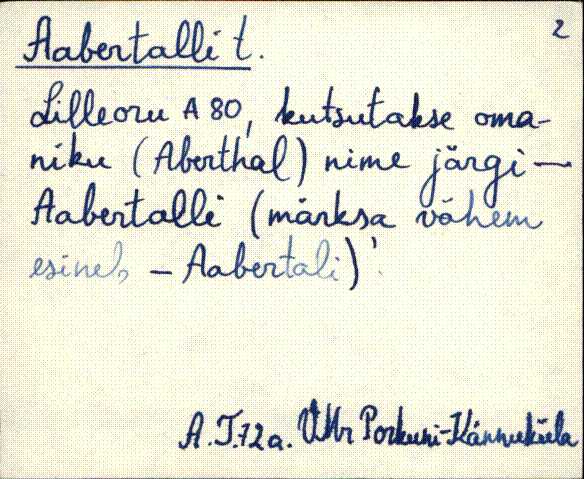 2
Aabertalli t.
Lilleoru A 80, kutsutakse oma-
niku (Aberthal) nime järgi —
Aabertalli (märksa vähem
esineb, — Aabertali)
A. T. 72 a. VMr Porkuni-Kännuküla